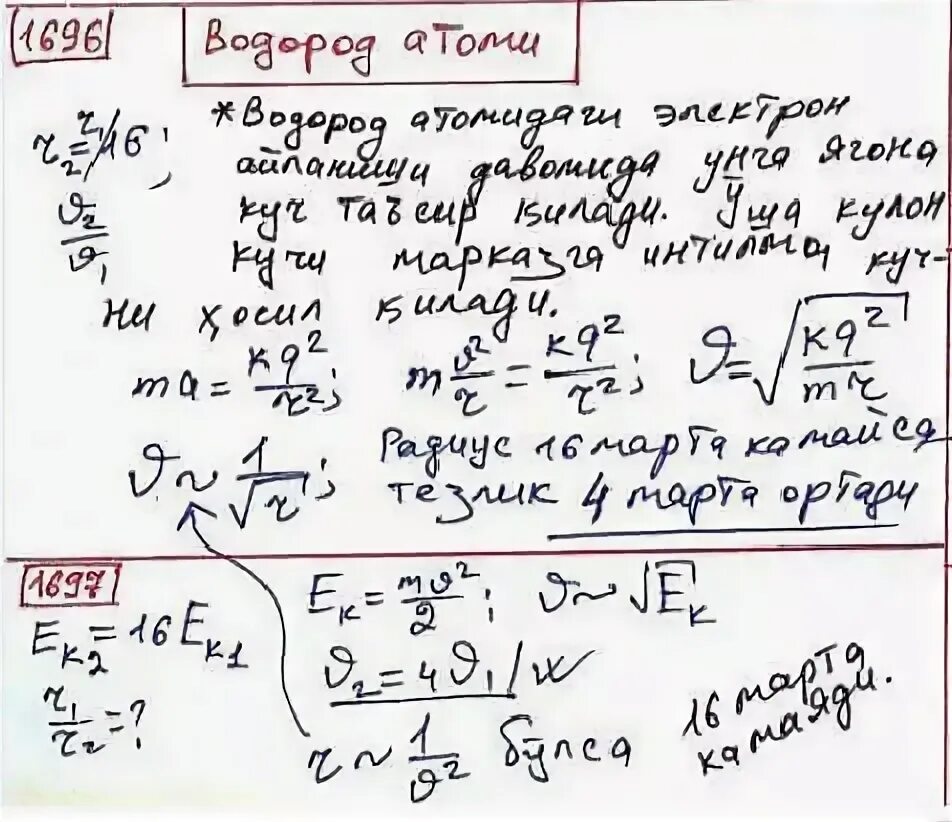 1696 Водород атоми
r₂ = r₁/16; *Водород атомидаги электрон
айланиши давомида унга ягона
ϑ₂/ϑ₁ куч таъсир қилади. Ўша кулон
кучи марказга интилма куч-
ни ҳосил қилади.
ma = kq²/r²; m ϑ²/r = kq²/r²; ϑ = √(kq²/mr)
ϑ ~ 1/√r; Радиус 16 марта камайса
тезлик 4 марта ортади
1697 Eк = mϑ²/2; ϑ ~ √Eк
Eк2 = 16 Eк1
ϑ₂ = 4ϑ₁
r₁/r₂ = ?
r ~ 1/ϑ² бўлса 16 марта
камаяди.